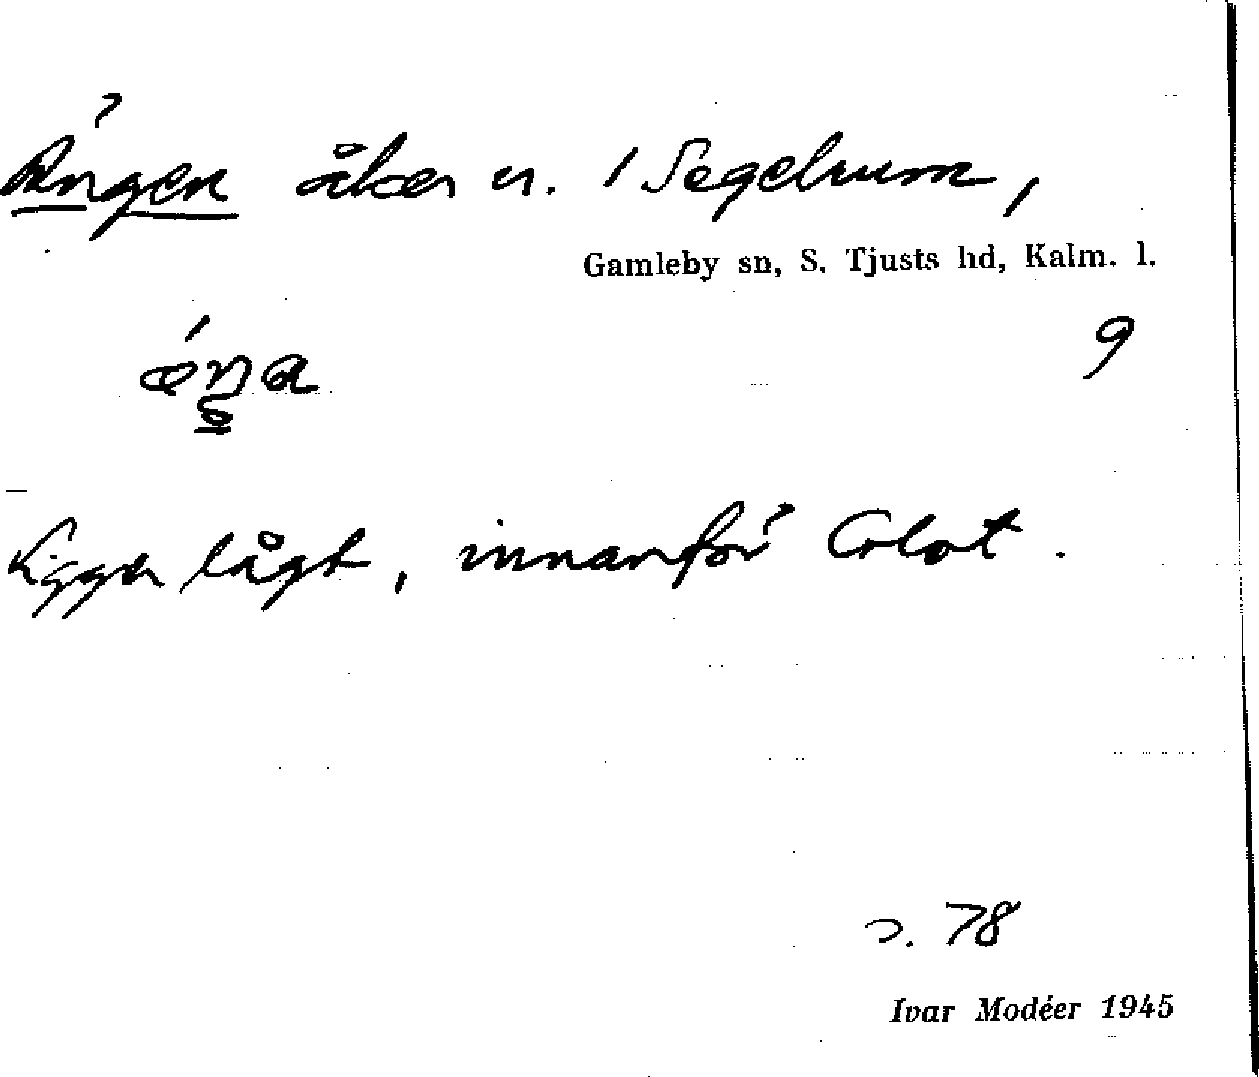 Ängen åker n. 1 Segelrum,
Gamleby sn, S. Tjusts hd, Kalm. l.
9
Ligger lågt, innanför
s. 78
Ivar Modéer 1945